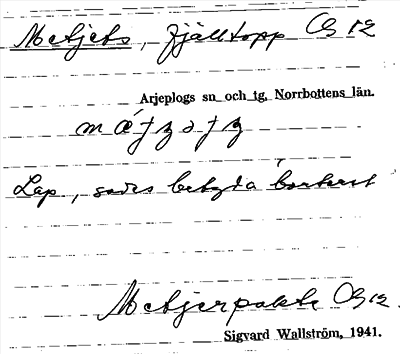 Metjets, fjälltopp Cg 12
Arjeplogs sn och tg, Norrbottens län.
mæ´tjzətjz
Lap, sades betyda borterst
Metjerpakte Cg 12.
Sigvard Wallström, 1941.